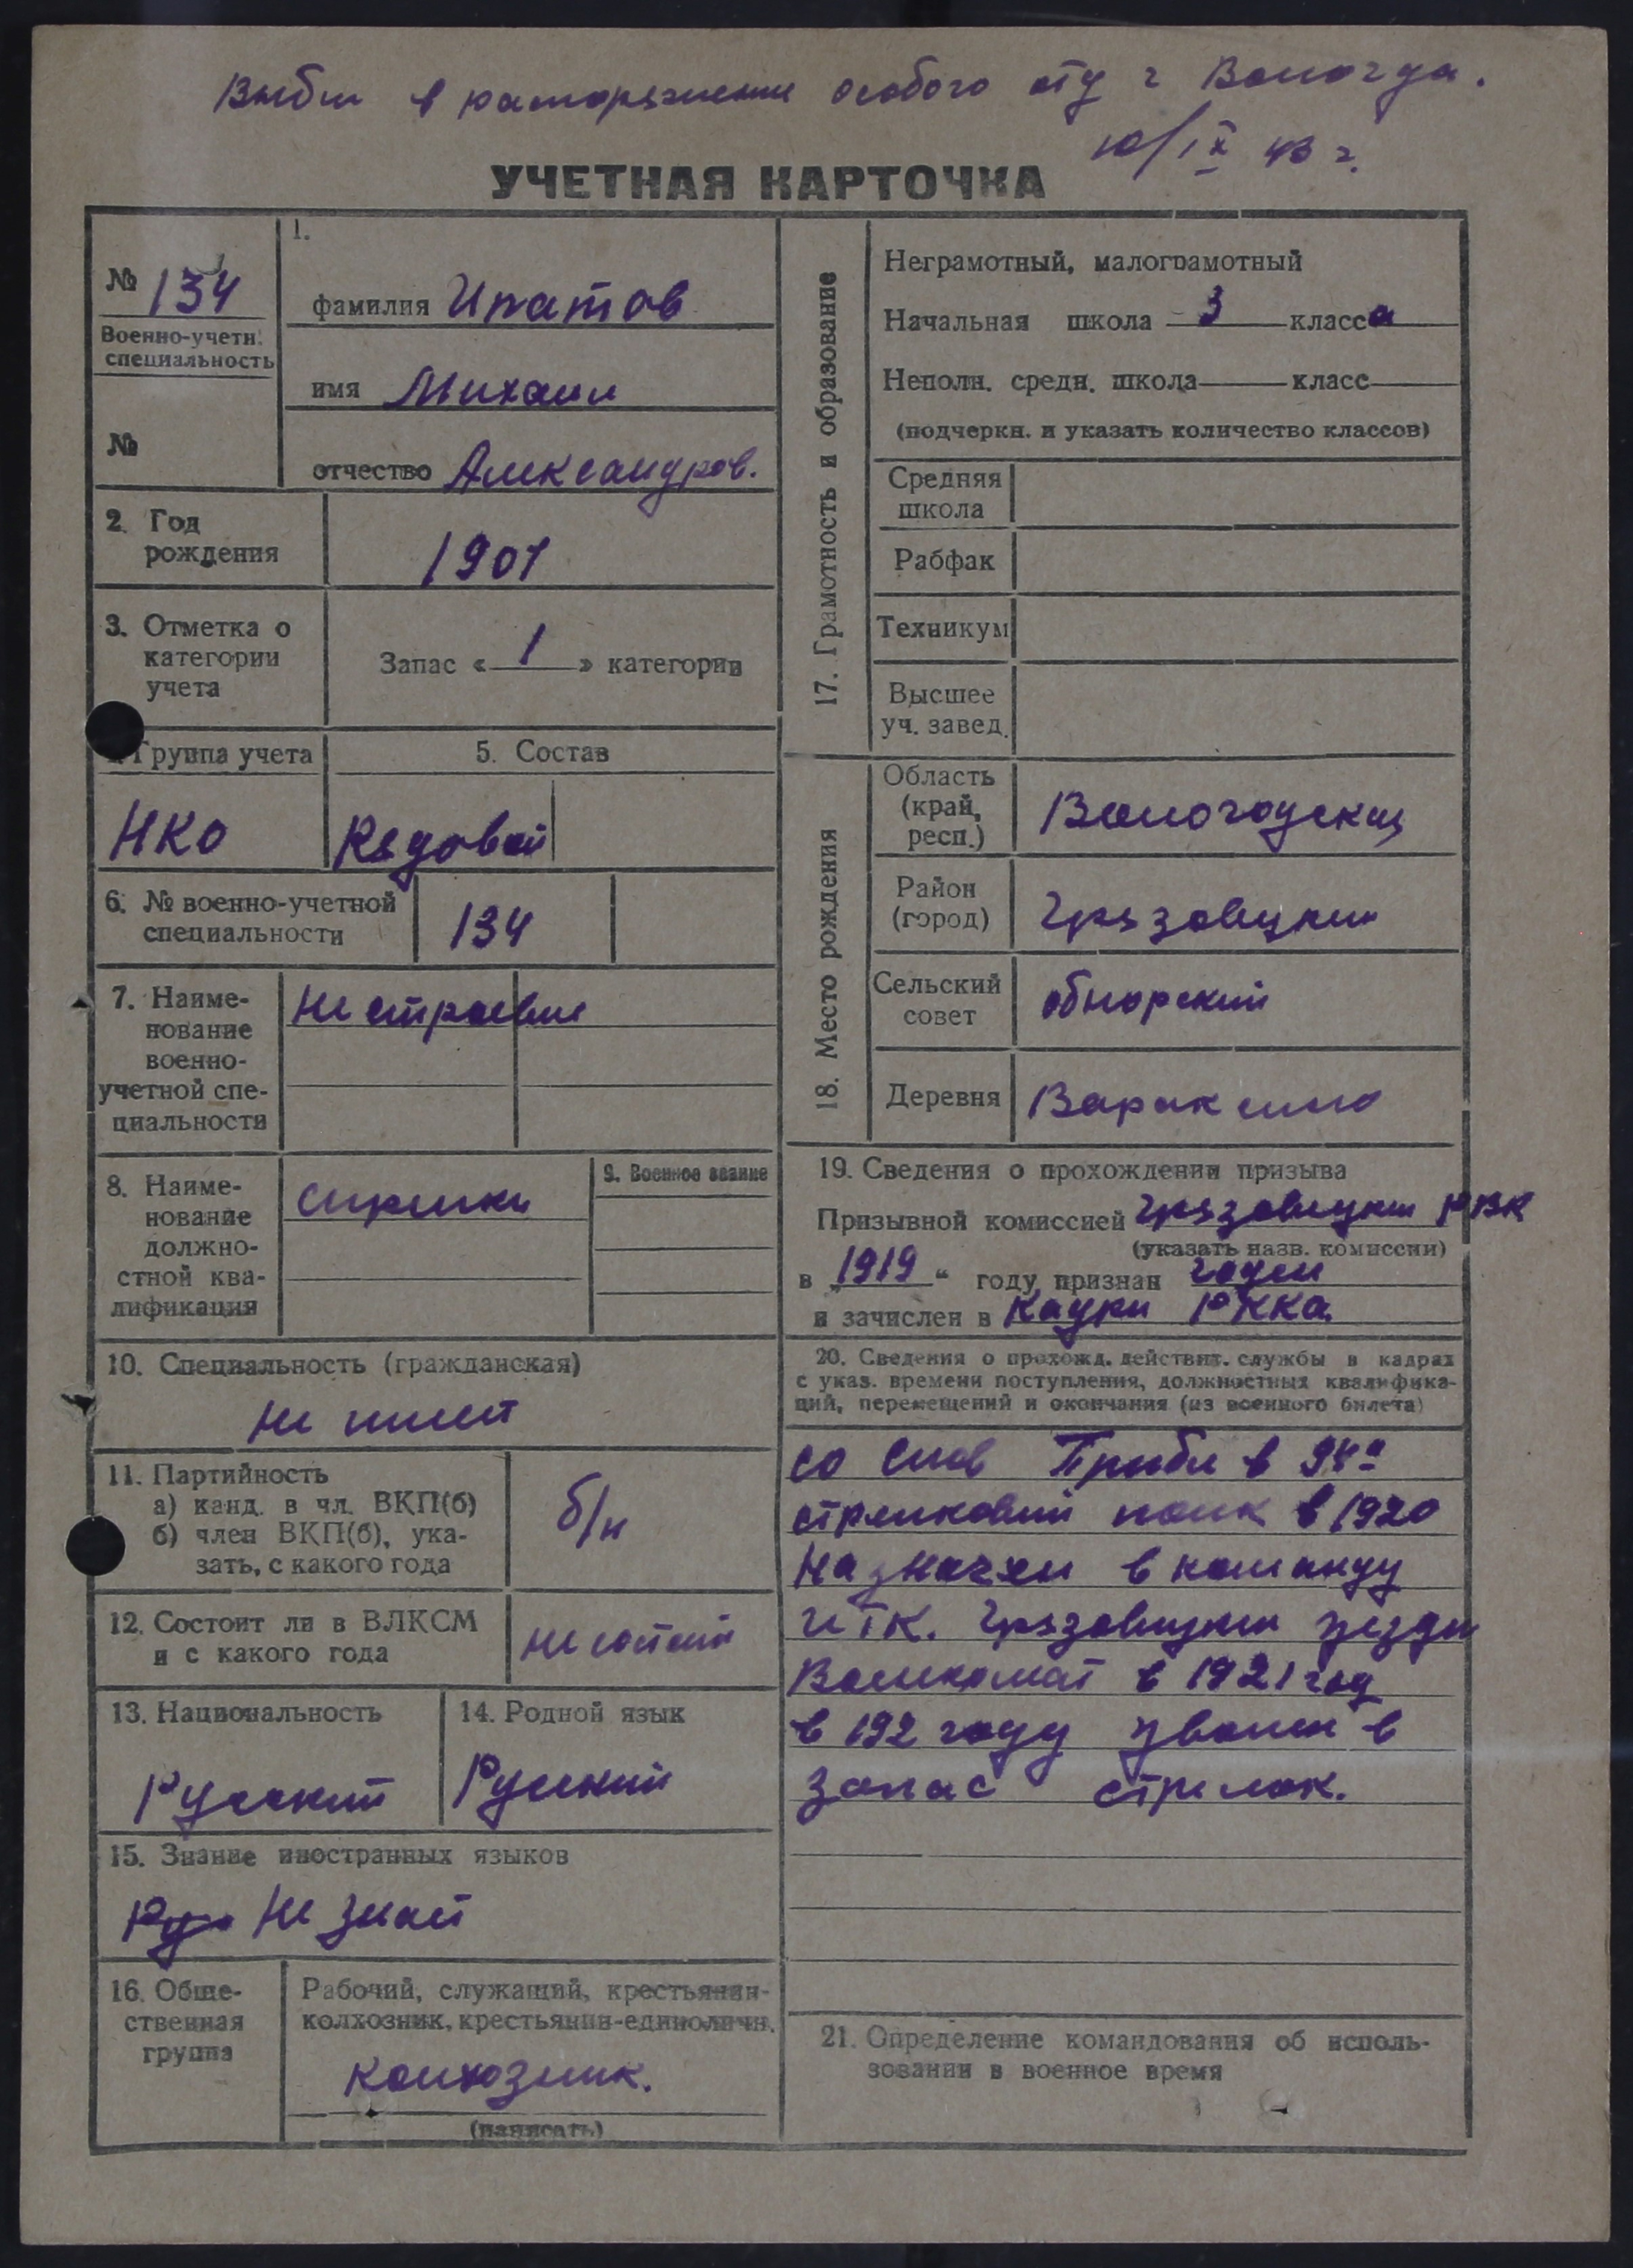 Выбыл в распоряжение особого отд г Вологда.
10/IX 43 г.
УЧЕТНАЯ КАРТОЧКА
№ 134
Военно-учетн.
специальность
№
1.
фамилия Ипатов
имя Михаил
отчество Александров.
2. Год
рождения
1901
3. Отметка о
категории
учета
Запас « 1 » категории
Группа учета
НКО
5. Состав
Рядовой
6. № военно-учетной
специальности
134
7. Наиме-
нование
военно-
учетной спе-
циальности
Не строевые
8. Наиме-
нование
должно-
стной ква-
лификации
стрелки
9. Военное звание
10. Специальность (гражданская)
не имеет
11. Партийность
а) канд. в чл. ВКП(б)
б) член ВКП(б), ука-
зать, с какого года
б/п
12. Состоит ли в ВЛКСМ
и с какого года
не состоит
13. Национальность
Русский
14. Родной язык
Русский
15. Знание иностранных языков
Не знает
16. Обще-
ственная
группа
Рабочий, служащий, крестьянин-
колхозник, крестьянин-единоличн.
колхозник.
(написать)
17. Грамотность и образование
Неграмотный, малограмотный
Начальная школа 3 класса
Неполн. средн. школа класс
(подчеркн. и указать количество классов)
Средняя
школа
Рабфак
Техникум
Высшее
уч. завед.
18. Место рождения
Область
(край,
респ.)
Вологодская
Район
(город)
Грязовецкий
Сельский
совет
обнорский
Деревня
Вараксино
19. Сведения о прохождении призыва
Призывной комиссией Грязовецким РВК
(указать назв. комиссии)
в „1919“ году признан годен
и зачислен в Кадры РККА
20. Сведения о прохожд. действит. службы в кадрах
с указ. времени поступления, должностных квалифика-
ций, перемещений и окончания (из военного билета)
со слов Прибыл в 94й
стрелковый полк в 1920
Назначен в команду
Грязовецкий уезды
Военкомат в 1921 год
в 192 году уволен в
запас стрелок.
21. Определение командования об исполь-
зовании в военное время